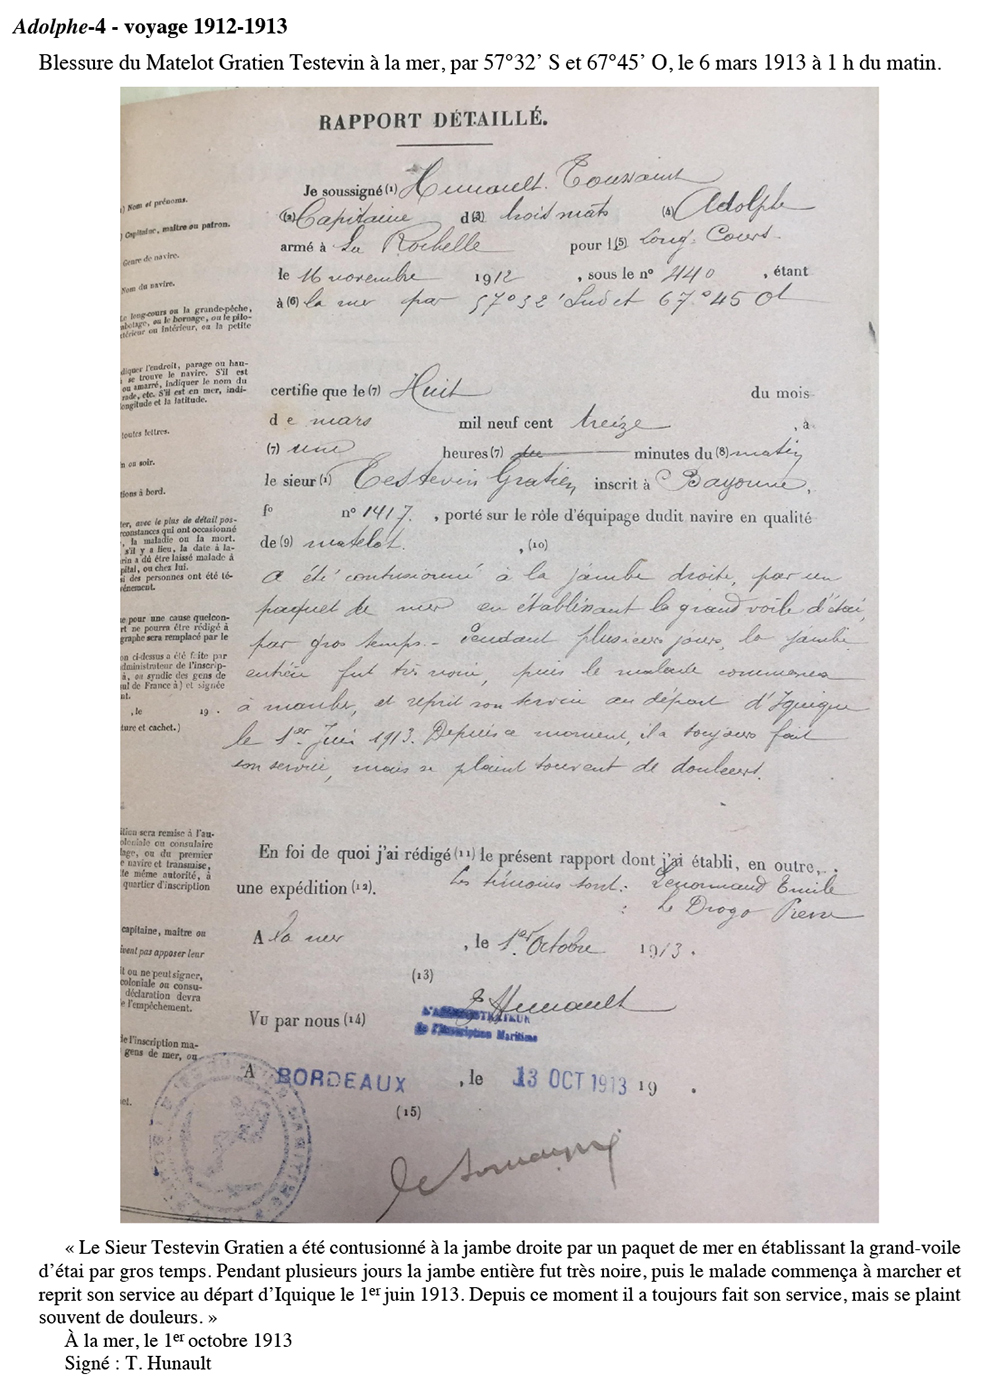 Adolphe-4 - voyage 1912-1913
Blessure du Matelot Gratien Testevin à la mer, par 57°32’ S et 67°45’ O, le 6 mars 1913 à 1 h du matin.
RAPPORT DÉTAILLÉ.
) Nom et prénoms.
Je soussigné (1) Hunault Toussaint
) Capitaine, maître ou patron.
(2) Capitaine d(3) trois mats (4) Adolphe
Genre de navire.
armé à La Rochelle pour l(5) Long-Cours.
Nom du navire.
le 16 novembre 1912 , sous le n° 440 , étant
à (6) la mer par 57°32' Sud et 67°45 Ot
long-cours ou la grande-pêche,
botage, ou le bornage, ou le pilo-
térieur ou intérieur, ou la petite
diquer l'endroit, parage ou hau-
se trouve le navire. S'il est
ou amarré, indiquer le nom du
rade, etc. S'il est en mer, indi-
longitude et la latitude.
certifie que le (7) Huit du mois
de mars mil neuf cent treize , à
toutes lettres.
(7) une heures (7) minutes du (8) matin
n ou soir.
le sieur (1) Testevin Gratien, inscrit à Bayonne,
tions à bord.
f° n° 1417. , porté sur le rôle d'équipage dudit navire en qualité
de (9) matelot. , (10)
ter, avec le plus de détail pos-
constances qui ont occasionné
, la maladie ou la mort.
s'il y a lieu, la date à la-
rin a dû être laissé malade à
pital, ou chez lui.
si des personnes ont été té-
événement.
a été contusionné à la jambe droite, par un
paquet de mer en établissant la grand voile d'étai,
par gros temps. - Pendant plusieurs jours, la jambe
entière fut très noire, puis le malade commença
à marcher, et reprit son service au départ d'Iquique
le 1er Juin 1913. Depuis ce moment, il a toujours fait
son service, mais se plaint souvent de douleurs.
e pour une cause quelcon-
rt ne pourra être rédigé à
graphe sera remplacé par le
on ci-dessus a été faite par
dministrateur de l'inscrip-
à, ou syndic des gens de
ul de France à) et signée
nt.
, le 19 .
ture et cachet.)
ition sera remise à l'au-
oloniale ou consulaire
lage, ou du premier
e navire et transmise,
te même autorité, à
quartier d'inscription
En foi de quoi j'ai rédigé (11) le présent rapport dont j'ai établi, en outre,
une expédition (12). Les témoins sont : Lenormand Emile
: Le Drogo Pierre
capitaine, maître ou
ivent pas apposer leur
A la mer , le 1er Octobre 1913.
(13)
it ou ne peut signer,
coloniale ou consu-
déclaration devra
e l'empêchement.
T. Hunault
Vu par nous (14)
L'ADMINISTRATEUR
de l'Inscription Maritime
de l'inscription ma-
gens de mer, ou
A BORDEAUX , le 13 OCT 1913 19 .
(15)
« Le Sieur Testevin Gratien a été contusionné à la jambe droite par un paquet de mer en établissant la grand-voile
d’étai par gros temps. Pendant plusieurs jours la jambe entière fut très noire, puis le malade commença à marcher et
reprit son service au départ d’Iquique le 1er juin 1913. Depuis ce moment il a toujours fait son service, mais se plaint
souvent de douleurs. »
À la mer, le 1er octobre 1913
Signé : T. Hunault